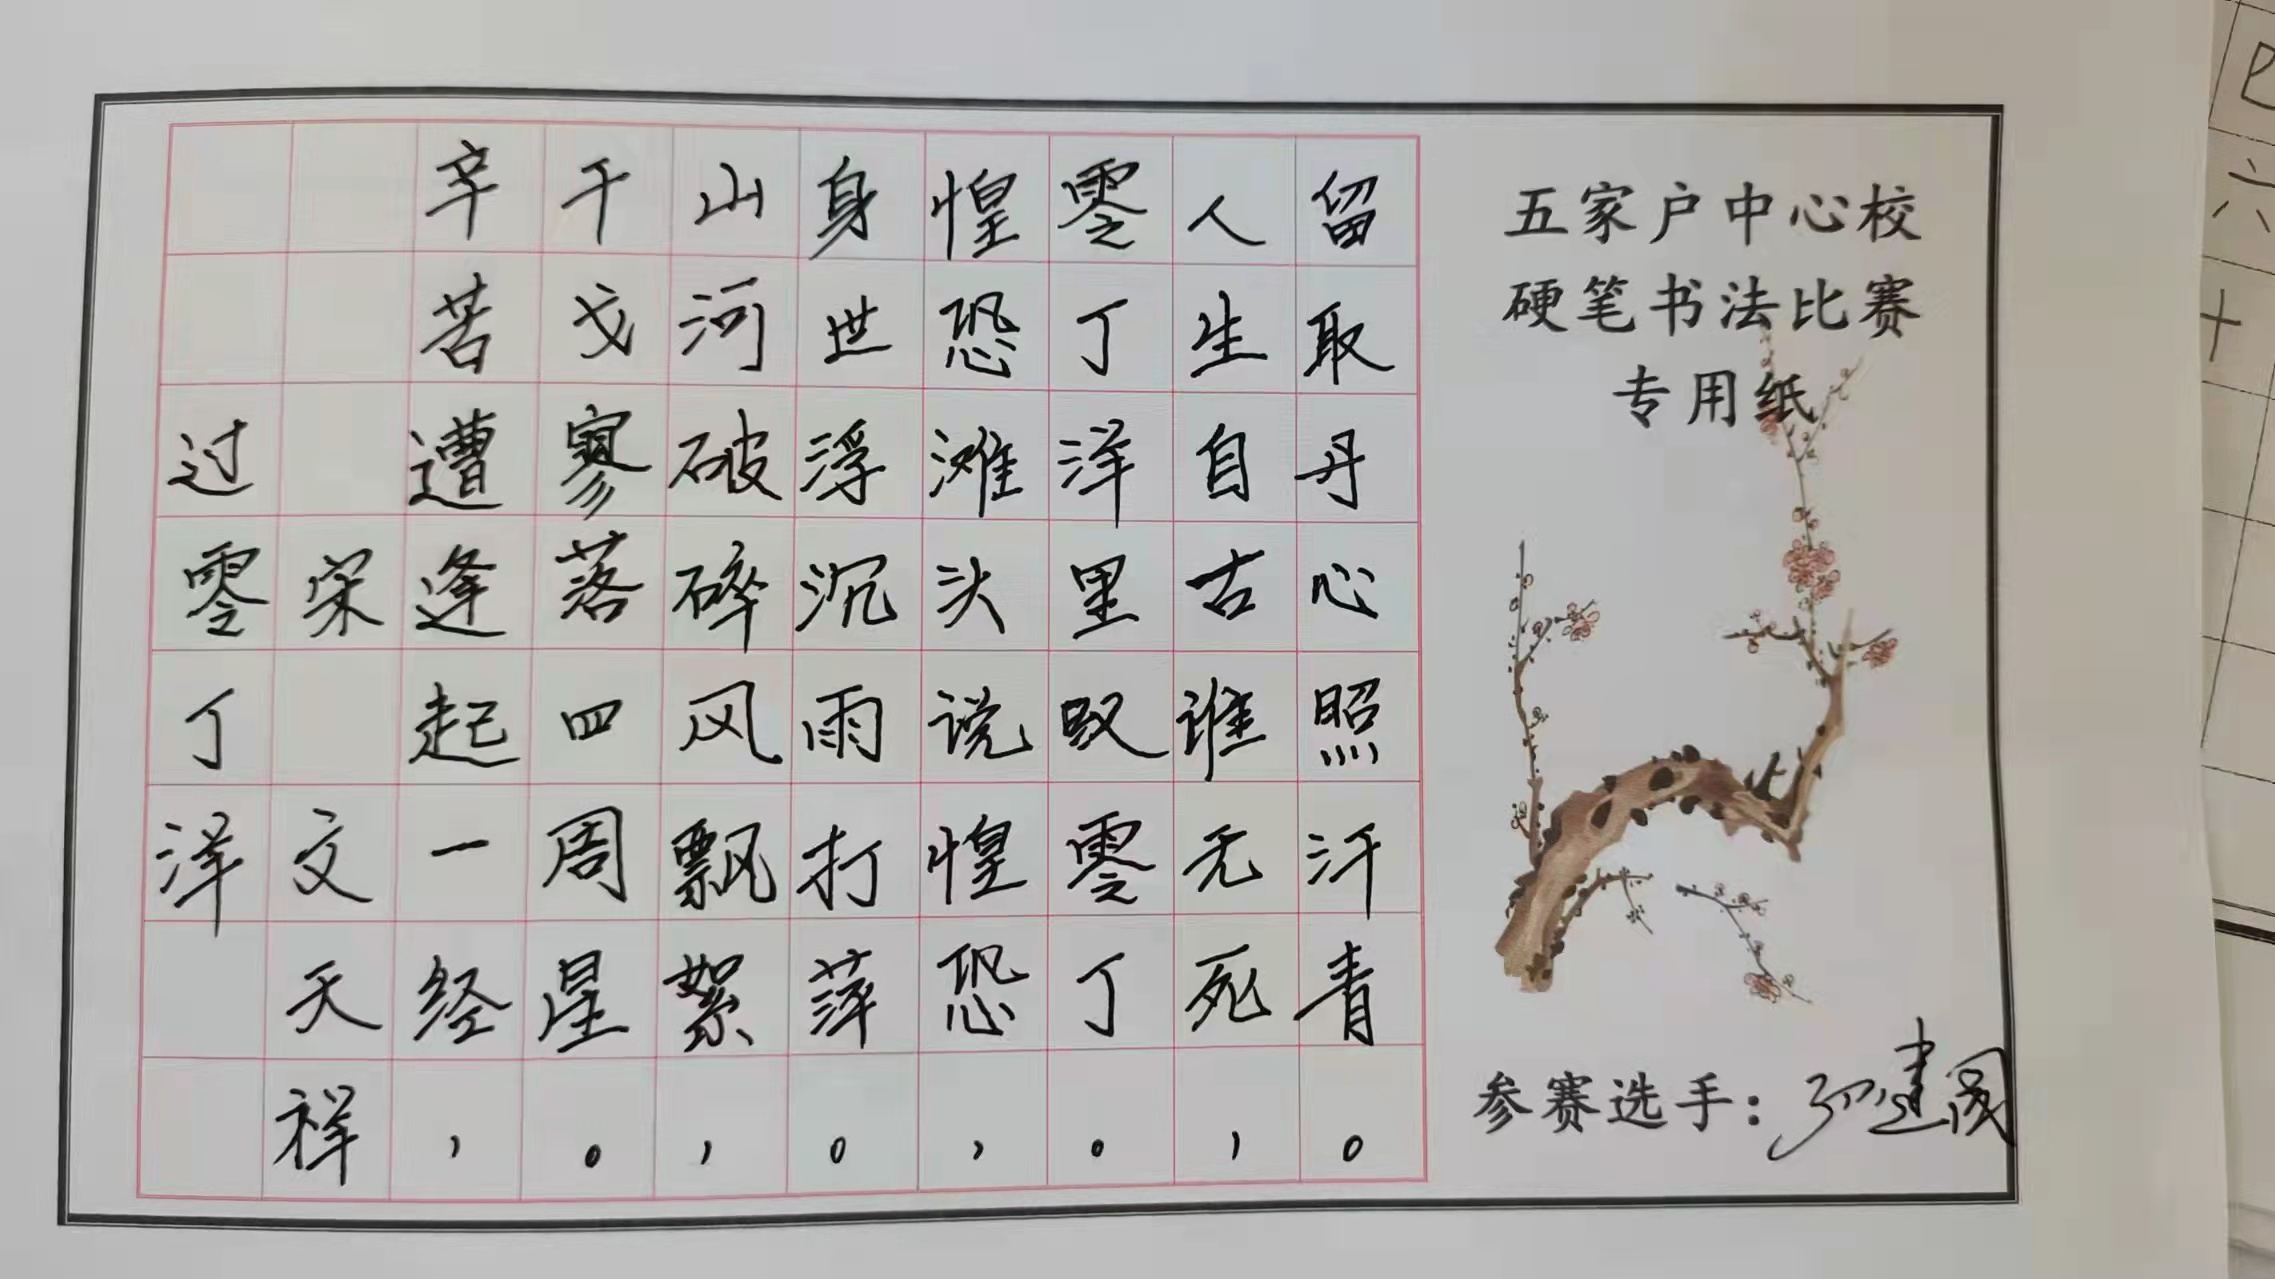 过零丁洋
宋 文天祥
辛苦遭逢起一经，
干戈寥落四周星。
山河破碎风飘絮，
身世浮沉雨打萍。
惶恐滩头说惶恐，
零丁洋里叹零丁。
人生自古谁无死，
留取丹心照汗青。
五家户中心校
硬笔书法比赛
专用纸
参赛选手：建国
六
十